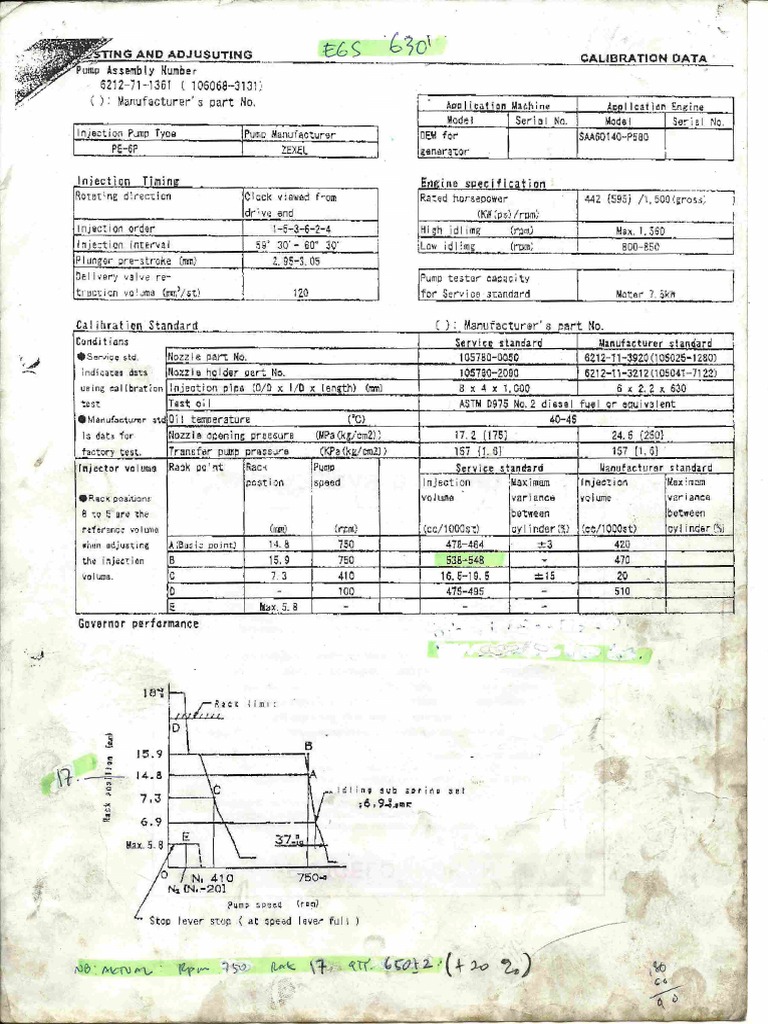 EGS 630'
STING AND ADJUSUTING
CALIBRATION DATA
Pump Assembly Number
6212-71-1361 ( 106068-3131)
( ): Manufacturer's part No.
Application Machine Application Engine
Model Serial No. Model Serial No.
OEM for generator SAA6D140-P580
Injection Pump Type Pump Manufacturer
PE-6P ZEXEL
Injection Timing
Rotating direction Clock viewed from drive end
Injection order 1-5-3-6-2-4
Injection interval 59° 30' - 60° 30'
Plunger pre-stroke (mm) 2.95-3.05
Delivery valve re-
traction volume (mm³/st) 120
Engine specification
Rated horsepower 442 {595} /1,500(gross)
(KW{ps}/rpm)
High idlimg (rpm) Max. 1,560
Low idlimg (rpm) 800-850
Pump tester capacity
for Service standard Moter 7.5kW
Calibration Standard
( ): Manufacturer's part No.
Conditions
Service standard Manufacturer standard
●Service std. Nozzle part No. 105780-0050 6212-11-3920(105025-1280)
indicates data Nozzle holder part No. 105780-2090 6212-11-3212(105041-7122)
using calibration Injection pipe (O/D x I/D x length) (mm) 8 x 4 x 1,000 6 x 2.2 x 630
test Test oil ASTM D975 No.2 diesel fuel or equivalent
●Manufacturer std Oil temperature (°C) 40-45
is data for Nozzle opening pressure (MPa{kg/cm2}) 17.2 {175} 24.5 {250}
factory test. Transfer pump pressure (KPa{kg/cm2}) 157 {1.6} 157 {1.6}
Injector volume Rack point Rack postion Pump speed Service standard Manufacturer standard
Injection volume Maximum variance between Injection volume Maximum variance between
●Rack positions
B to E are the
reference volume (mm) (rpm) (cc/1000st) cylinder(%) (cc/1000st) cylinder(%)
when adjusting A(Basic point) 14.8 750 476-484 ±3 420
the injection B 15.9 750 538-548 - 470
volume. C 7.3 410 16.5-19.5 ±15 20
D - 100 475-495 - 510
E Max. 5.8 - - -
Governor performance
Rack limit
D
15.9 B
14.8 A
17
Idling sub spring set
C
7.3
6.9
Max. 5.8 E
37
Rack position (mm)
0 N₁ 410 750
N₂ [N₁-20]
Pump speed (rpm)
Stop lever stop ( at speed lever full )
NB: AKTUAL: Rpm 750 Rak 17 QTY. 650±2 (+20 %)